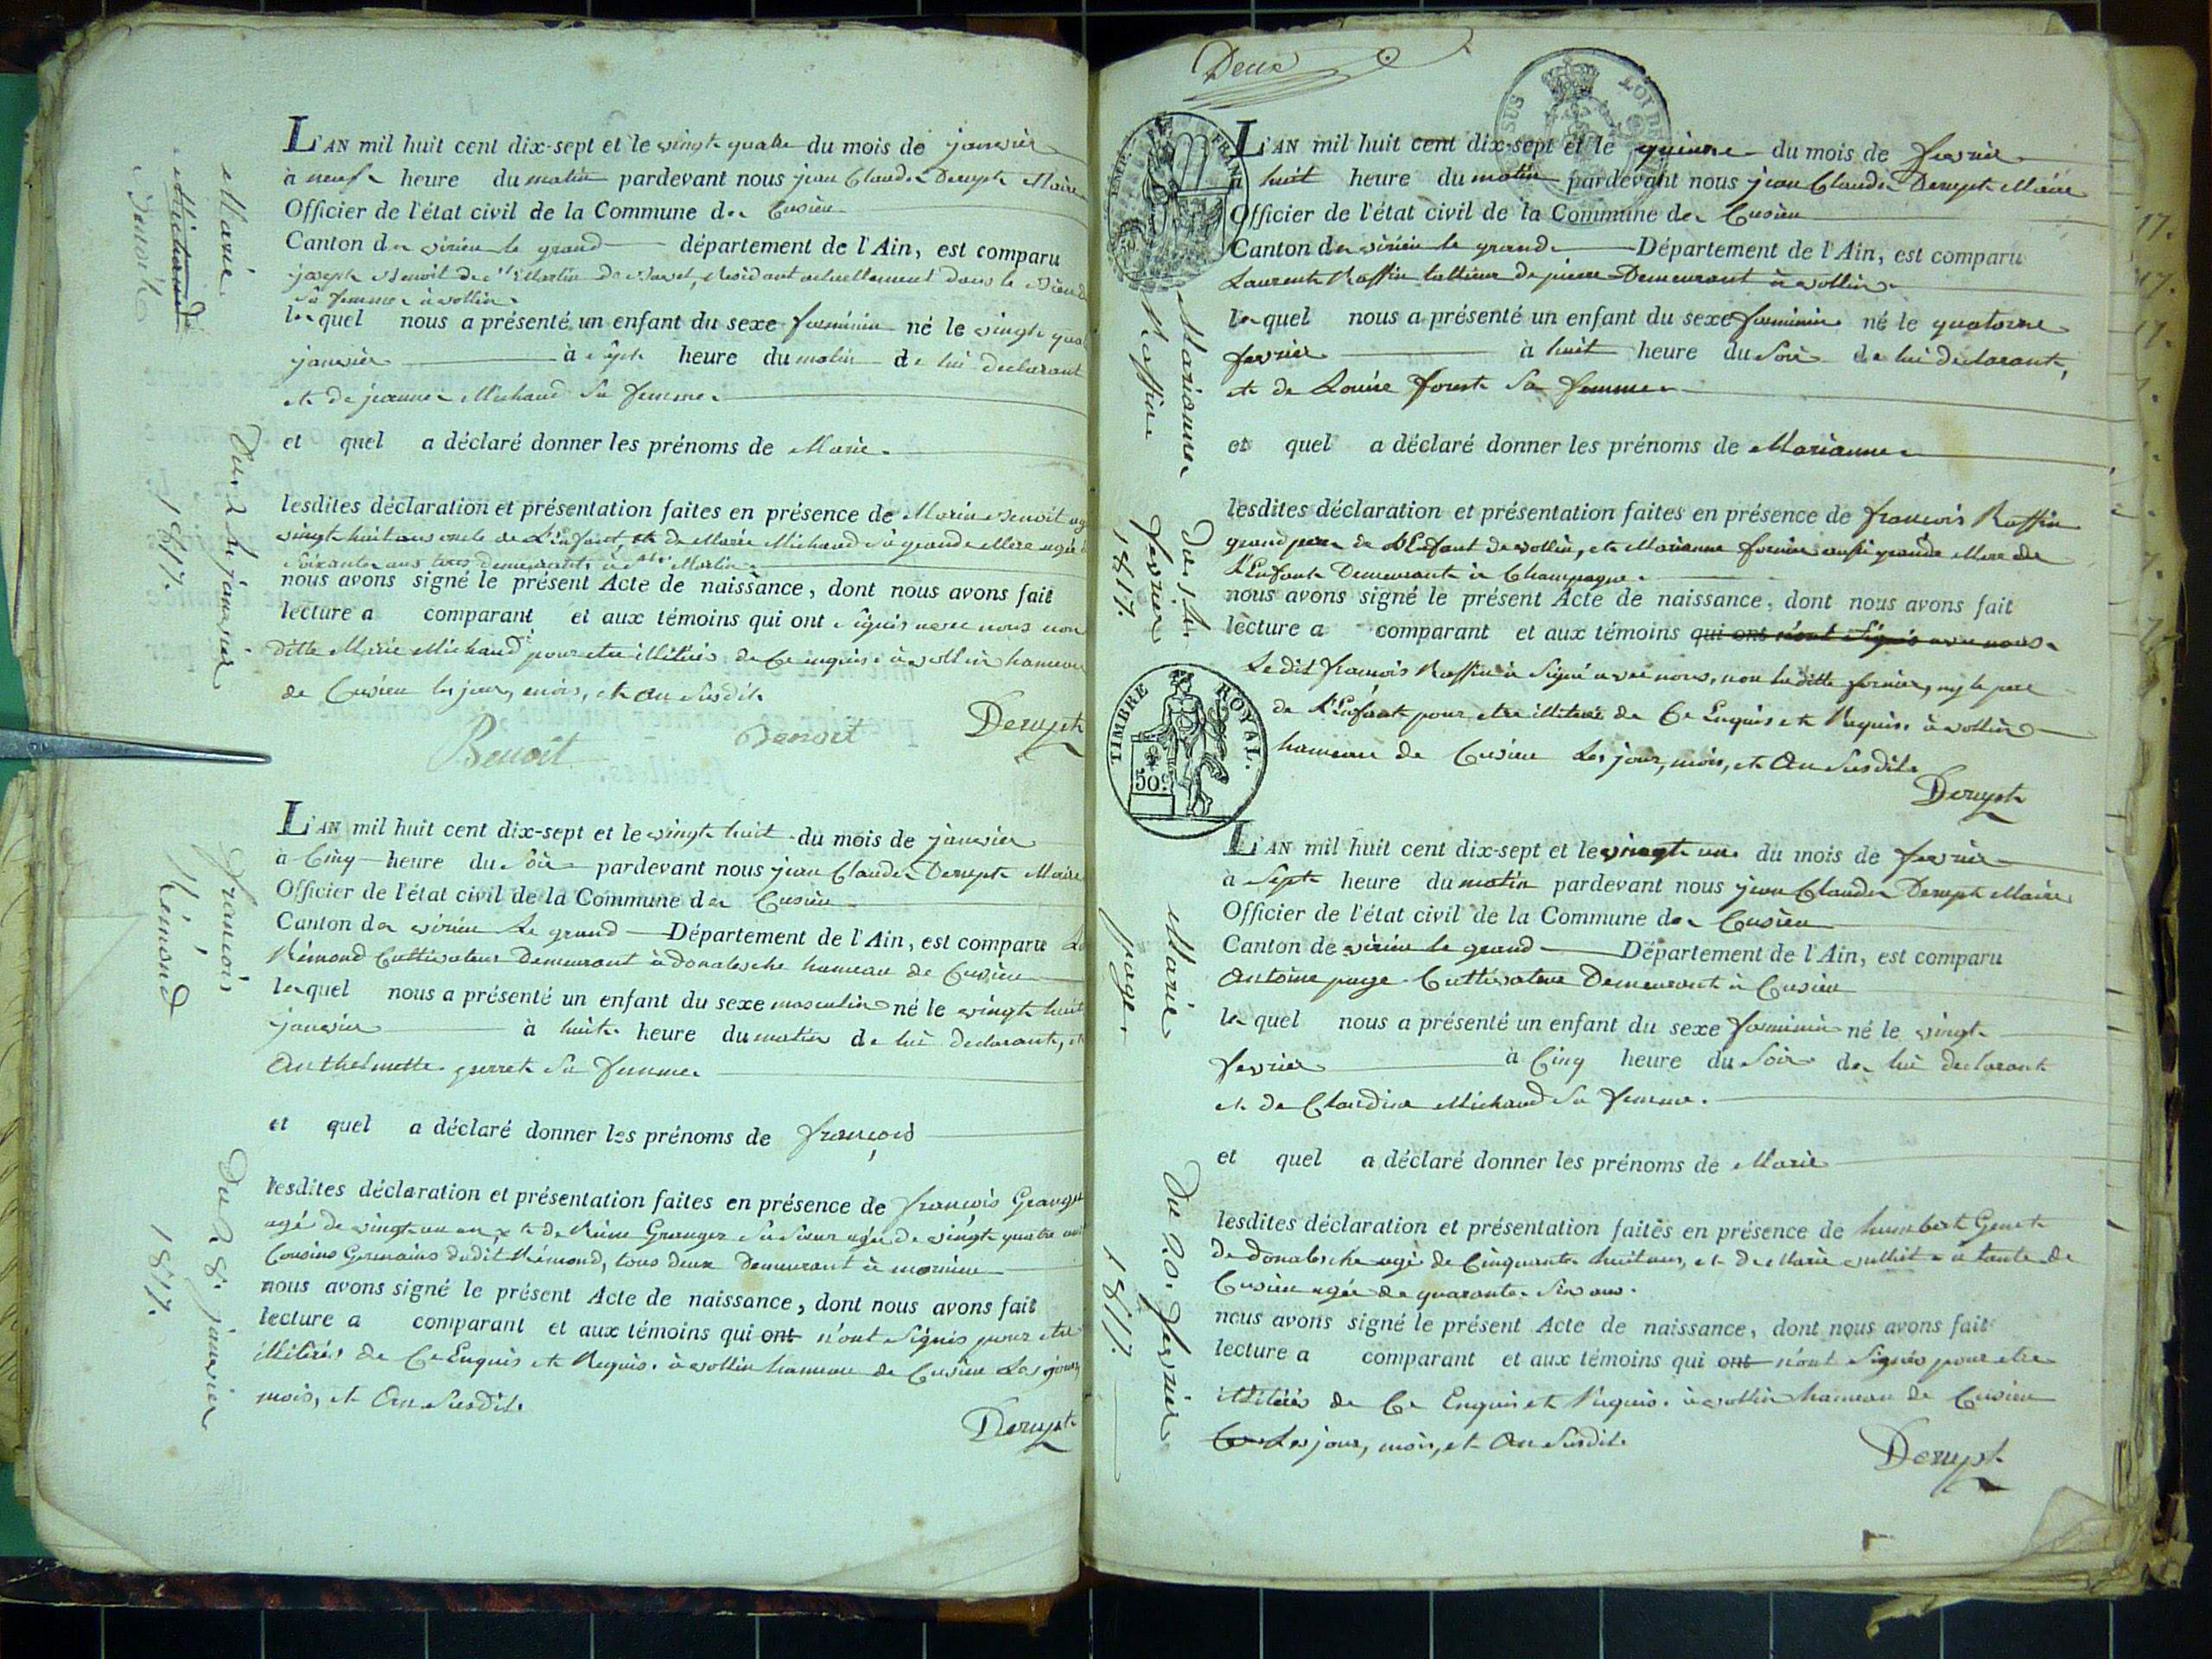 Marie
Michaud
Benoit
Du 24 janvier
1817.
L'AN mil huit cent dix-sept et le vingt quatre du mois de janvier
à neuf heure du matin pardevant nous jean Claude Derupt Maire
Officier de l'état civil de la Commune de Cusieu
Canton de virieu le grand département de l'Ain, est comparu
joseph Benoit de St Martin de Bavel, Residant actuellement dans le
sa femme à vollin
lequel nous a présenté un enfant du sexe feminin né le vingt
janvier à sept heure du matin de lui declarant
et de jeanne Michaud sa femme
et quel a déclaré donner les prénoms de Marie
lesdites déclaration et présentation faites en présence de Benoit
vingt huit ans oncle de L'enfant, et de Marie Michaud sa grande Mere agée
Soixante ans tous demeurants à St Martin
nous avons signé le présent Acte de naissance, dont nous avons fait
lecture a comparant et aux témoins qui ont signés avec nous non
ditte Marie Michaud pour etre illitéré de Ce enquis. à vollin hameau
de Cusieu les jour, mois, et An Susdit.
Benoit Benoit Derupt
françois
Rémond
Du 28. janvier
1817.
L'AN mil huit cent dix-sept et le vingt huit du mois de janvier
à Cinq heure du Soir pardevant nous jean Claude Derupt Maire
Officier de l'état civil de la Commune de Cusieu
Canton de virieu Le grand Département de l'Ain, est comparu
Rémond Cultivateur Demeurant à donalesche hameau de Cusieu
lequel nous a présenté un enfant du sexe masculin né le vingt huit
janvier à huit heure du matin de lui declarant, et
Anthelmette perret Sa femme
et quel a déclaré donner les prénoms de françois
lesdites déclaration et présentation faites en présence de françois Granger
agé de vingt un an, et de Reine Granger Sa Sœur agée de vingt quatre ans
Cousins Germains dudit Rémond, tous deux Demeurant à
nous avons signé le présent Acte de naissance, dont nous avons fait
lecture a comparant et aux témoins qui ont n'ont Signés pour etre
illitérés de Ce Enquis et Requis. à vollin hameau de Cusieu Les jour,
mois, et An Susdit.
Derupt
Deux
SUS LOI DE
EMP. FRAN
TIMBRE ROYAL.
50c
Marianne
Raffin
Du 14
fevrier
1817.
L'AN mil huit cent dix-sept et le quinze du mois de fevrier
à huit heure du matin pardevant nous jean Claude Derupt Maire
Officier de l'état civil de la Commune de Cusieu
Canton de virieu le grand Département de l'Ain, est comparu
Laurent Raffin tallieur de pierre Demeurant à vollin
lequel nous a présenté un enfant du sexe feminin né le quatorze
fevrier à huit heure du Soir de lui declarant,
et de Louise forest Sa femme
et quel a déclaré donner les prénoms de Marianne
lesdites déclaration et présentation faites en présence de françois Raffin
grand pere de L'Enfant de vollin, et Marianne fornier aussi grande Mere de
L'Enfant Demeurant à Champagne.
nous avons signé le présent Acte de naissance, dont nous avons fait
lecture a comparant et aux témoins qui ont n'ont Signés avec nous.
Le dit françois Raffin à Signé avec nous, non la ditte fornier, ny le pere
de L'Enfant pour etre illiteré de Ce Enquis et Requis. à vollin
hameau de Cusieu Les jour, mois, et An Susdit.
Derupt
Marie
page
Du 20. fevrier
1817.
L'AN mil huit cent dix-sept et le vingt un du mois de fevrier
à Sept heure du matin pardevant nous jean Claude Derupt Maire
Officier de l'état civil de la Commune de Cusieu
Canton de virieu le grand Département de l'Ain, est comparu
Antoine page Cultivateur Demeurant à Cusieu
lequel nous a présenté un enfant du sexe feminin né le vingt
fevrier à Cinq heure du Soir de lui declarant
et de Claudine Michaud Sa femme.
et quel a déclaré donner les prénoms de Marie
lesdites déclaration et présentation faites en présence de humbert
de donalesche agé de Cinquante huit ans, et de Marie tante de
Cusieu agée de quarante Six ans.
nous avons signé le présent Acte de naissance, dont nous avons fait
lecture a comparant et aux témoins qui ont n'ont Signés pour etre
illitérés de Ce Enquis et Requis. à vollin hameau de Cusieu
Les jour, mois, et An Susdit.
Derupt